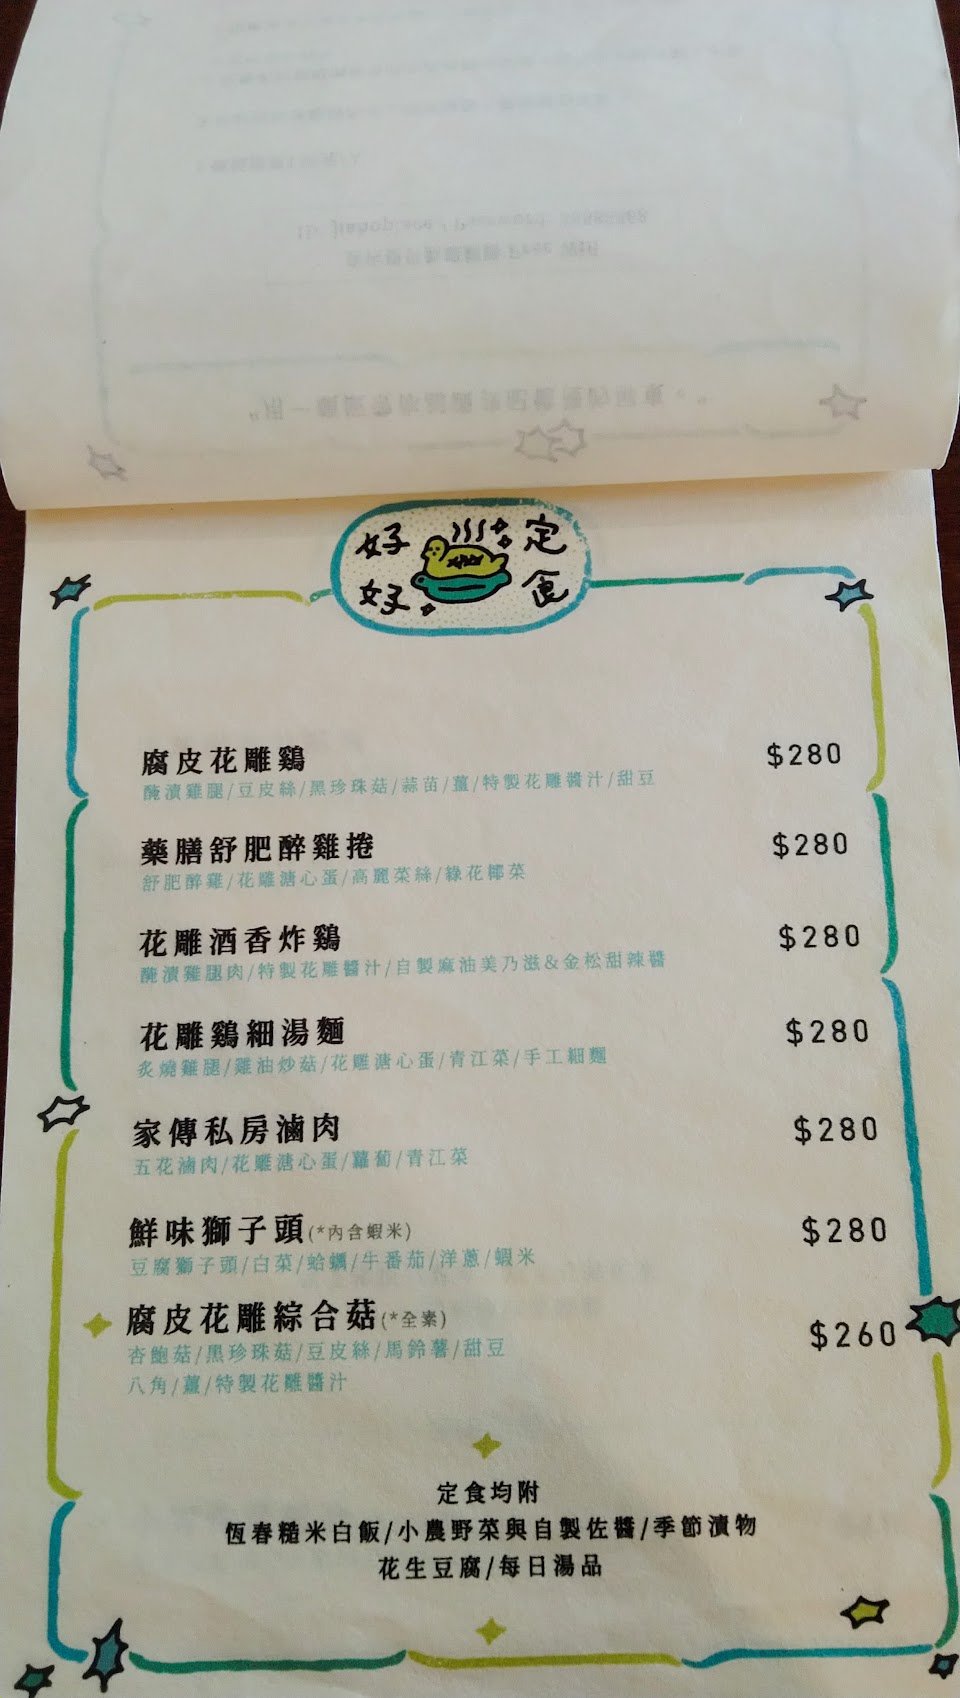 好好定食
腐皮花雕鷄
$280
醃漬雞腿/豆皮絲/黑珍珠菇/蒜苗/薑/特製花雕醬汁/甜豆
藥膳舒肥醉雞捲
$280
舒肥醉雞/花雕溏心蛋/高麗菜絲/綠花椰菜
花雕酒香炸鷄
$280
醃漬雞腿肉/特製花雕醬汁/自製麻油美乃滋&金松甜辣醬
花雕鷄細湯麵
$280
炙燒雞腿/雞油炒菇/花雕溏心蛋/青江菜/手工細麵
家傳私房滷肉
$280
五花滷肉/花雕溏心蛋/蘿蔔/青江菜
鮮味獅子頭(*內含蝦米)
$280
豆腐獅子頭/白菜/蛤蠣/牛番茄/洋蔥/蝦米
腐皮花雕綜合菇(*全素)
$260
杏鮑菇/黑珍珠菇/豆皮絲/馬鈴薯/甜豆
八角/薑/特製花雕醬汁
定食均附
恆春糙米白飯/小農野菜與自製佐醬/季節漬物
花生豆腐/每日湯品